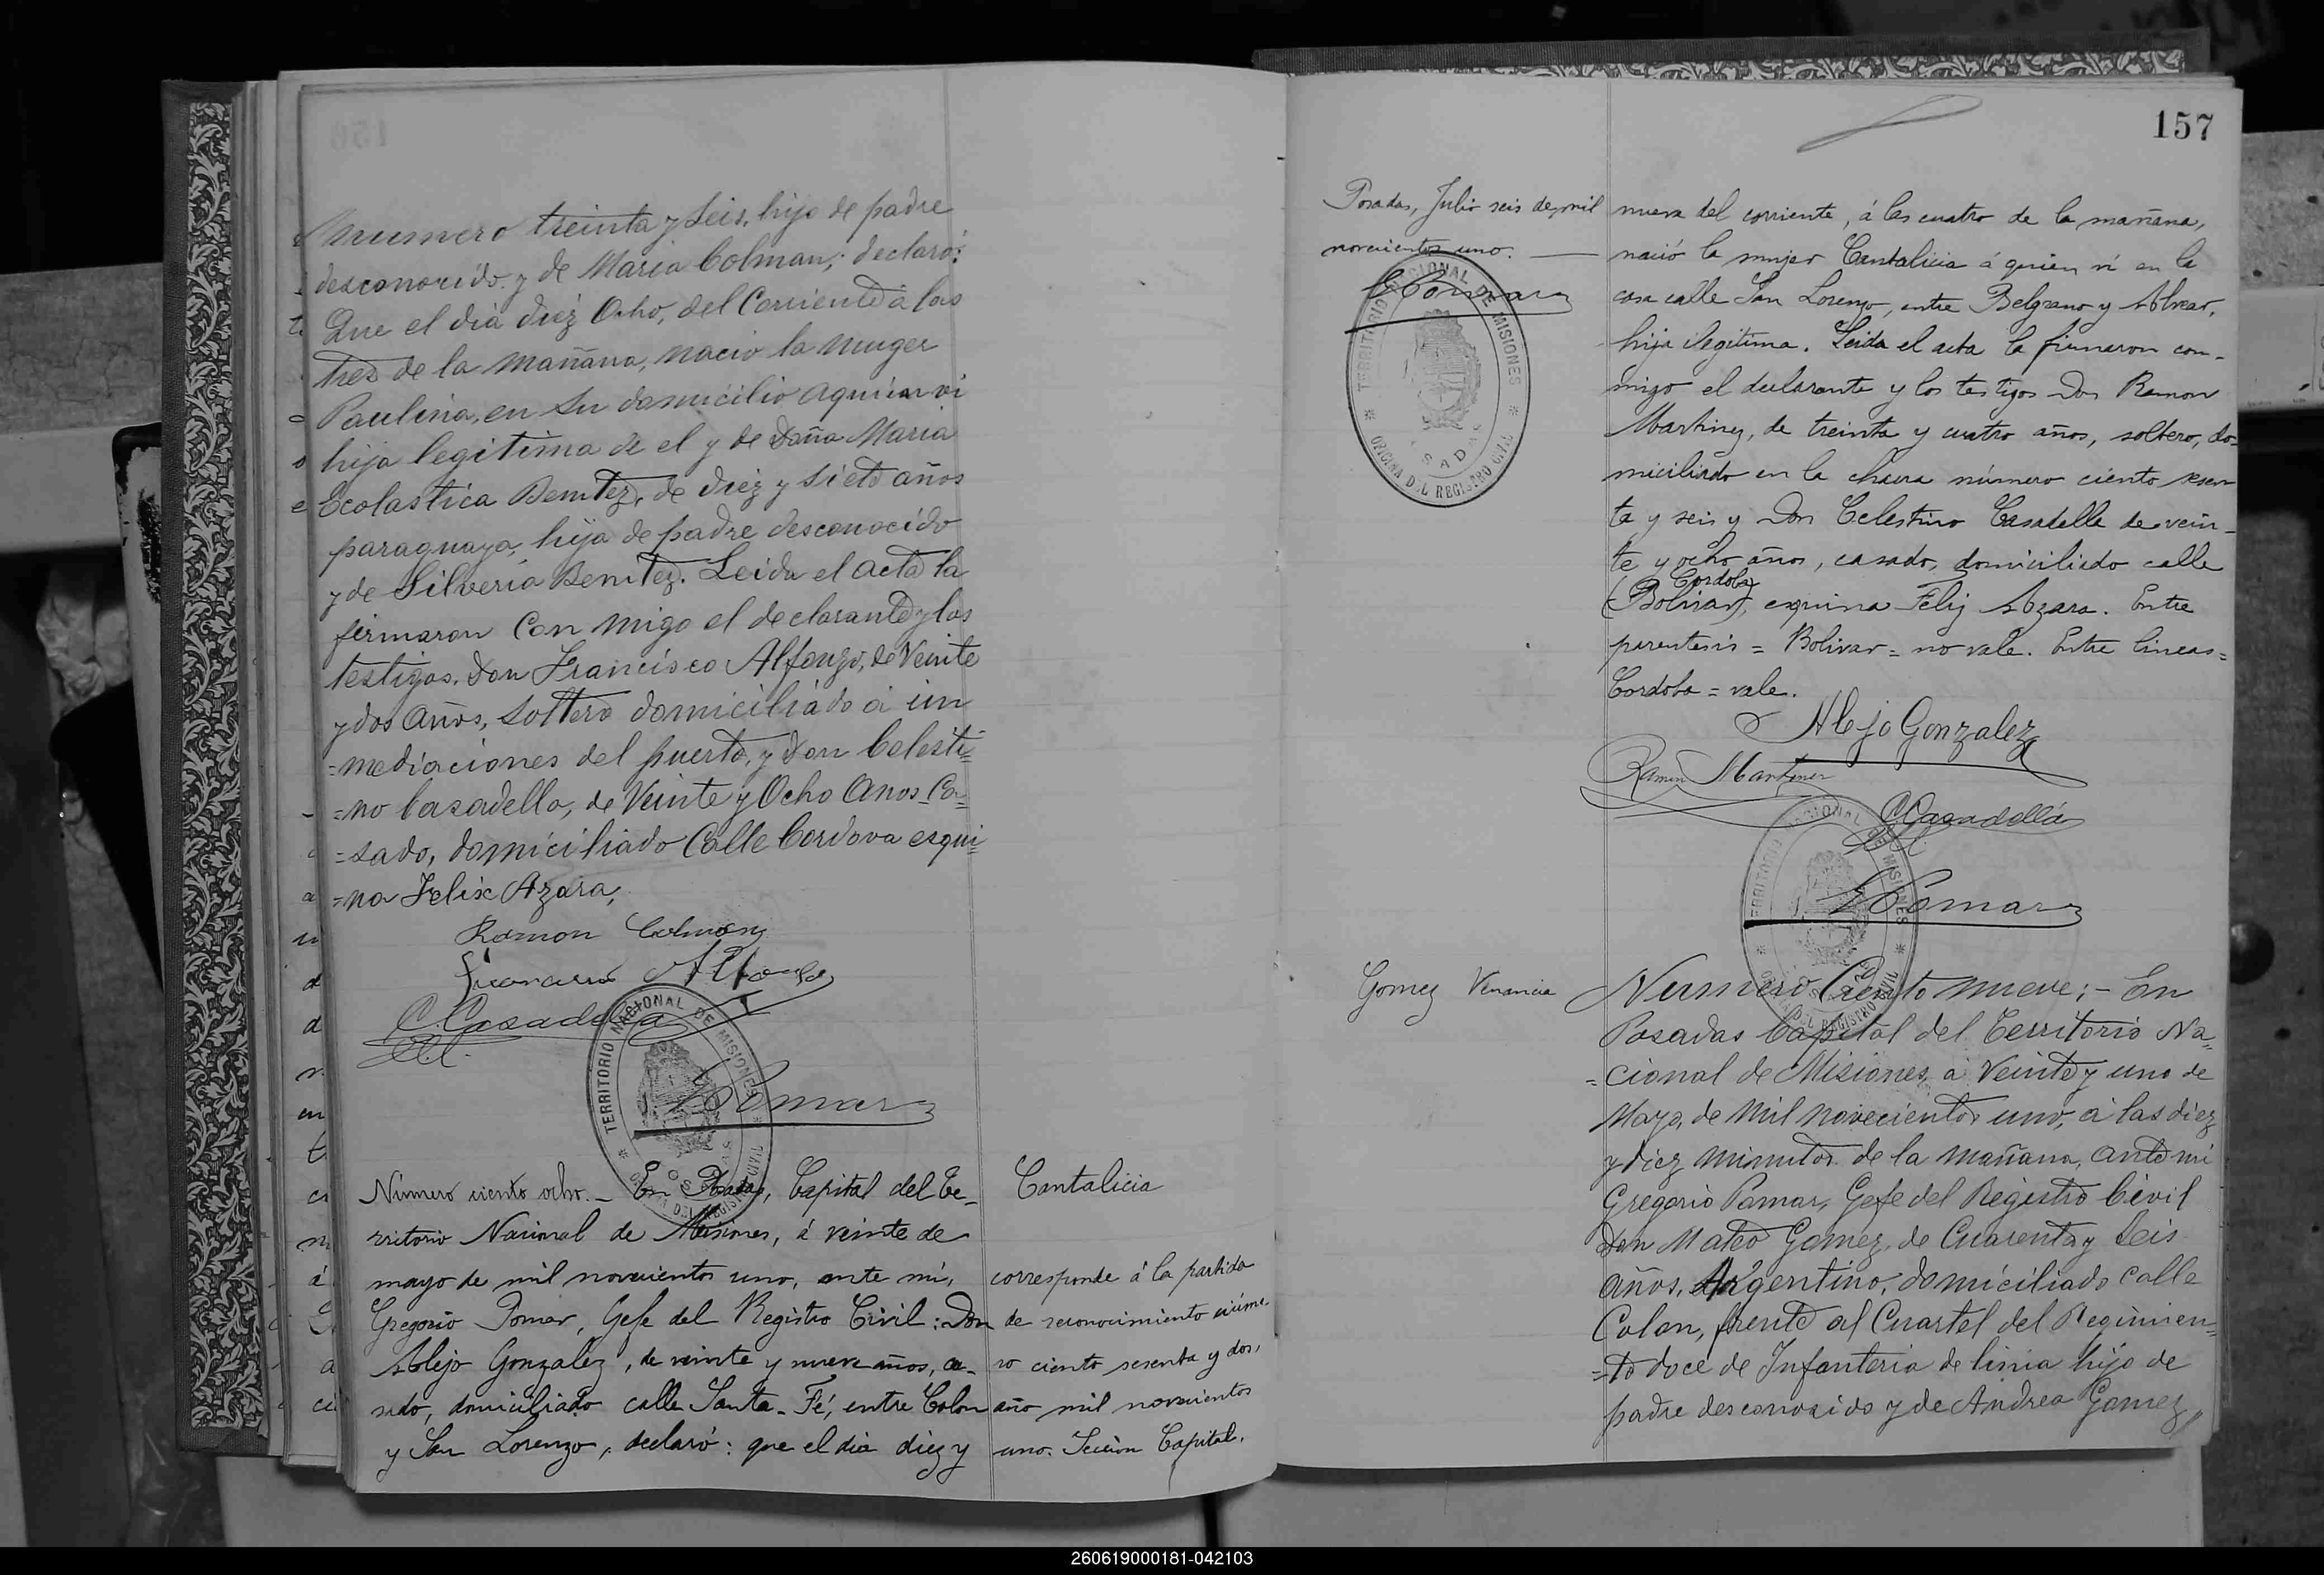 numero treinta y seis, hijo de padre
desconocido y de Maria Colman; declaró:
Que el dia diez Ocho, del Corriente á las
tres de la mañana, nacio la muger
Paulina, en su domicilio aquien vi
hija legitima de el y de Doña Maria
Ecolastica Benitez, de diez y siete años
paraguaya, hija de padre desconocido
y de Silveria Benitez. Leida el acta la
firmaron Con migo el declarante y los
testigos. Don Francisco Alfonzo, de Veinte
y dos años, soltero domiciliado á in
=mediaciones del puerto, y Don Celesti=
=no Casadella, de Veinte y Ocho Anos Ca=
=sado, domiciliado Calle Cordova esqui=
=na Felix Azara,
Ramon Colman
Francisco Alfonzo
C. Casadella
TERRITORIO NACIONAL DE MISIONES
OFICINA DEL REGISTRO CIVIL
POSADAS
G Pomar
Numero ciento ocho. _ En Posadas, Capital del Te-
rritorio Nacional de Misiones, á veinte de
mayo de mil novecientos uno, ante mi,
Gregorio Pomar, Gefe del Registro Civil: Don
Alejo Gonzalez, de veinte y nueve años, ca-
sado, domiciliado calle Santa-Fé, entre Colon
y San Lorenzo, declaró: que el dia diez y
Cantalicia
corresponde á la partida
de reconocimiento núme-
ro ciento sesenta y dos,
año mil novecientos
uno. Seccion Capital.
157
Posadas, Julio seis de mil
novecientos uno. —
G Pomar
TERRITORIO NACIONAL DE MISIONES
OFICINA DEL REGISTRO CIVIL
POSADAS
nueve del corriente, á las cuatro de la mañana,
nació la mujer Cantalicia á quien ví en la
casa calle San Lorenzo, entre Belgrano y Alvear,
hija ilegitima. Leida el acta la firmaron con-
migo el declarante y los testigos Don Ramon
Martinez, de treinta y cuatro años, soltero, do-
miciliado en la chacra número ciento sesen-
ta y seis y Don Celestino Casadella de vein-
te y ocho años, casado, domiciliado calle
Cordoba
(Bolivar), esquina Feliz Azara. Entre
parentesis = Bolivar = no vale. Entre lineas =
Cordoba = vale.
Alejo Gonzalez
Ramon Martinez
C. Casadellá
TERRITORIO NACIONAL DE MISIONES
OFICINA DEL REGISTRO CIVIL
G Pomar
Gomez Venancia
Numero Ciento nueve; - En
Posadas Capital del Territorio Na=
=cional de Misiones, á Veinte y uno de
Mayo, de Mil novecientos uno, á las diez
y diez minutos de la mañana, ante mi
Gregorio Pomar, Gefe del Registro Civil
Don Mateo Gomez, de Cuarenta y Seis
años, Argentino, domiciliado calle
Colon, frente al Cuartel del Regimien=
=to doce de Infanteria de linia hijo de
padre desconocido y de Andrea Gomez,
260619000181-042103